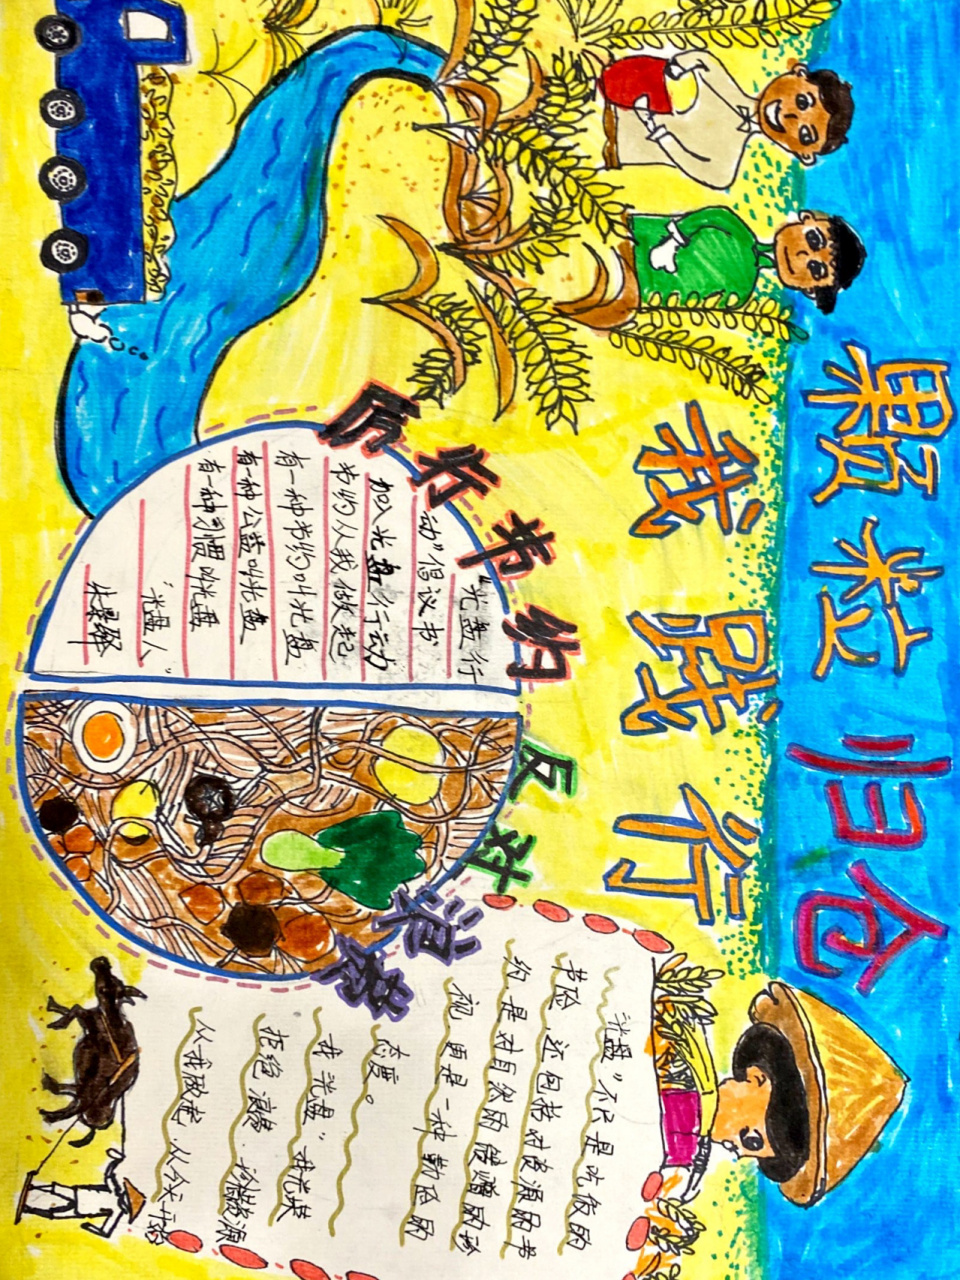 颗粒归仓
我践行
厉行节约
反对浪费
"光盘行
动"倡议书
加入光盘行动
节约人我做起
有一种节约叫光盘
有一种公益叫光盘
有一种习惯叫光盘
"光盘人"
"光盘"不只是吃饭的
节俭 还包括对资源的节
约 是对自然的馈赠的珍
视 更是一种勤俭的
态度。
我光盘 我光荣
拒绝浪费 珍惜资源
从我做起 从今天